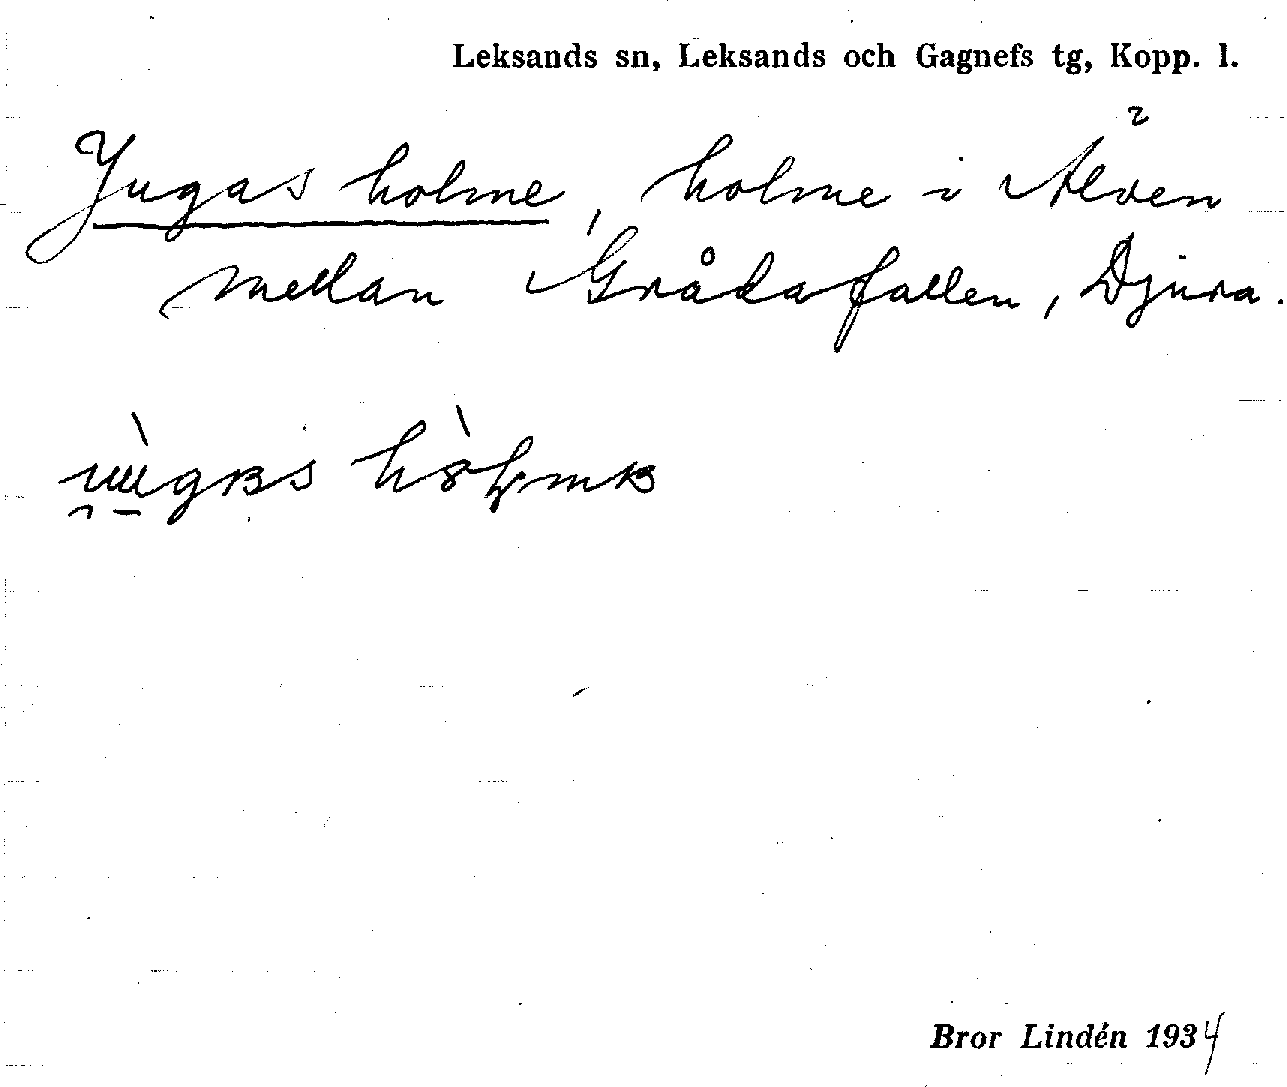 Leksands sn, Leksands och Gagnefs tg, Kopp. l.
Jugas holme, holme i Älven
mellan Grådafallen, Djura.
Bror Lindén 1934